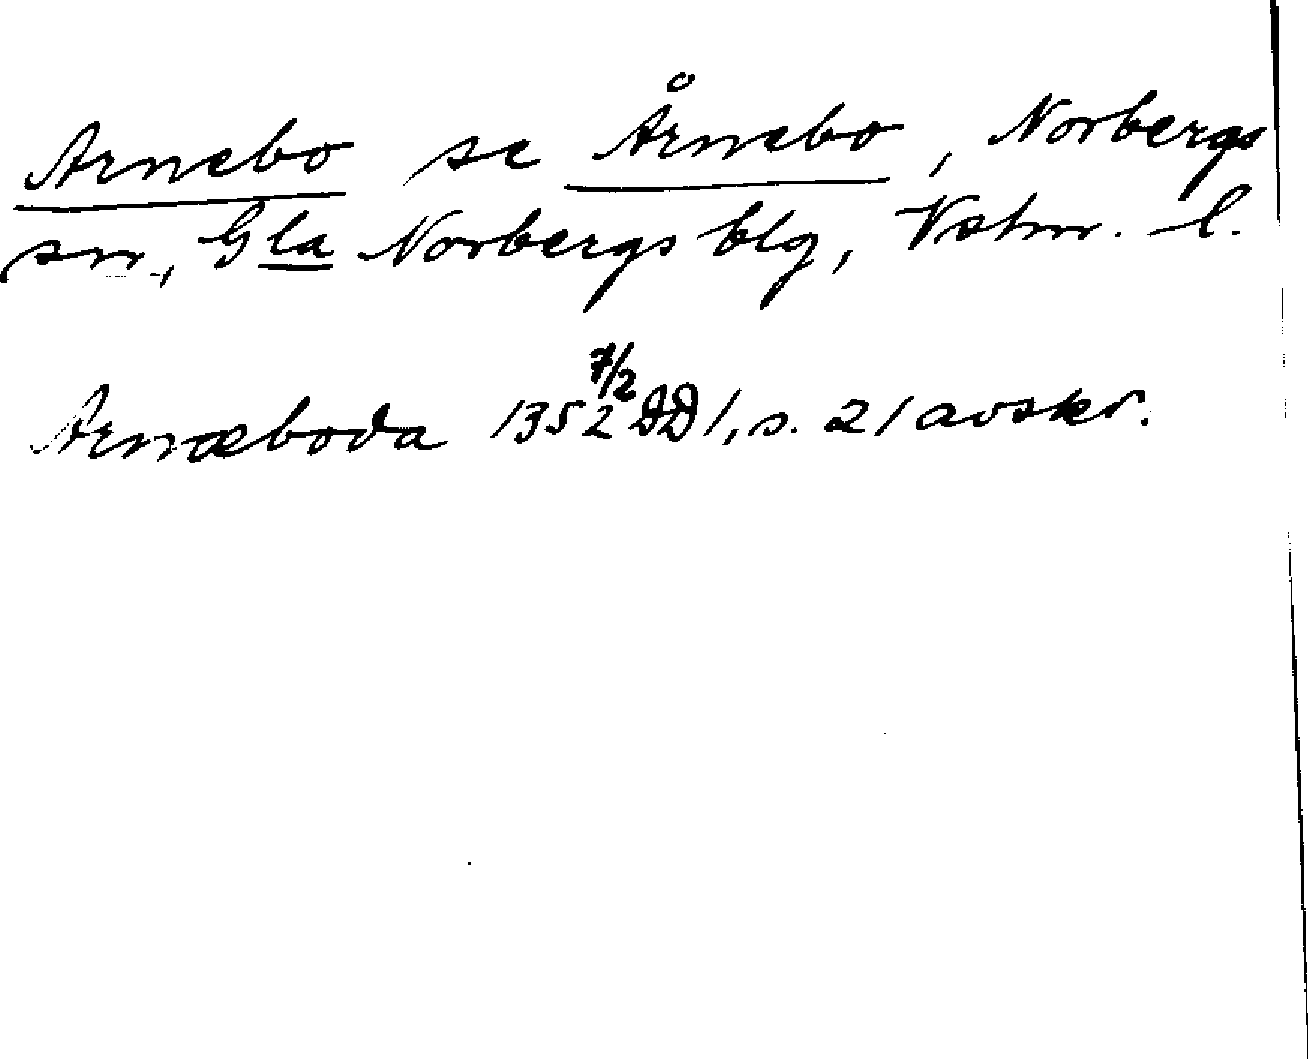 Arnebo se Årnebo, Norbergs
sn., Gla Norbergs blg, Vstm. l.
Arnæboda 1352 7/2 DD 1, s. 21 avskr.